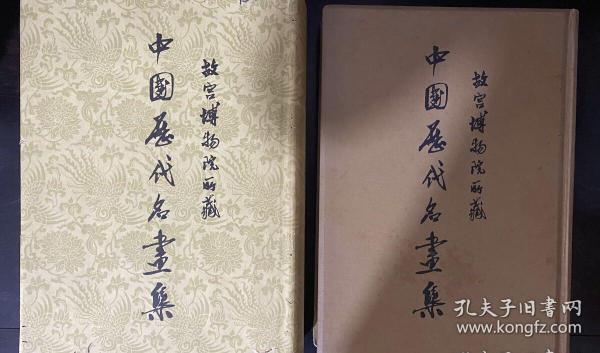 故宫博物院所藏
中國歷代名畫集
故宫博物院所藏
中國歷代名畫集
孔夫子旧书网
www.kongfz.com